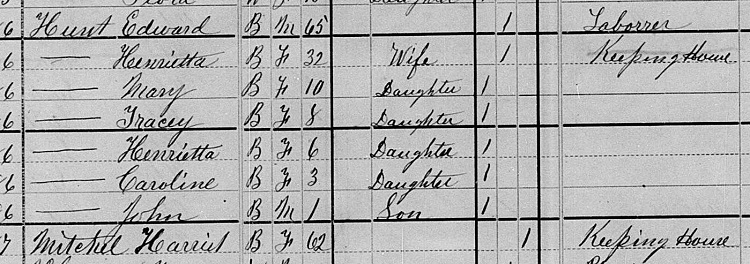 Flora Daughter
6 Hunt Edward B M 65 1 Laborrer
6 —— Henrietta B F 32 Wife 1 Keeping House
6 —— Mary B F 10 Daughter 1
6 —— Tracey B F 8 Daughter 1
6 —— Henrietta B F 6 Daughter 1
6 —— Caroline B F 3 Daughter 1
6 —— John B M 1 Son 1
7 Mitchel Harriet B F 62 1 Keeping House